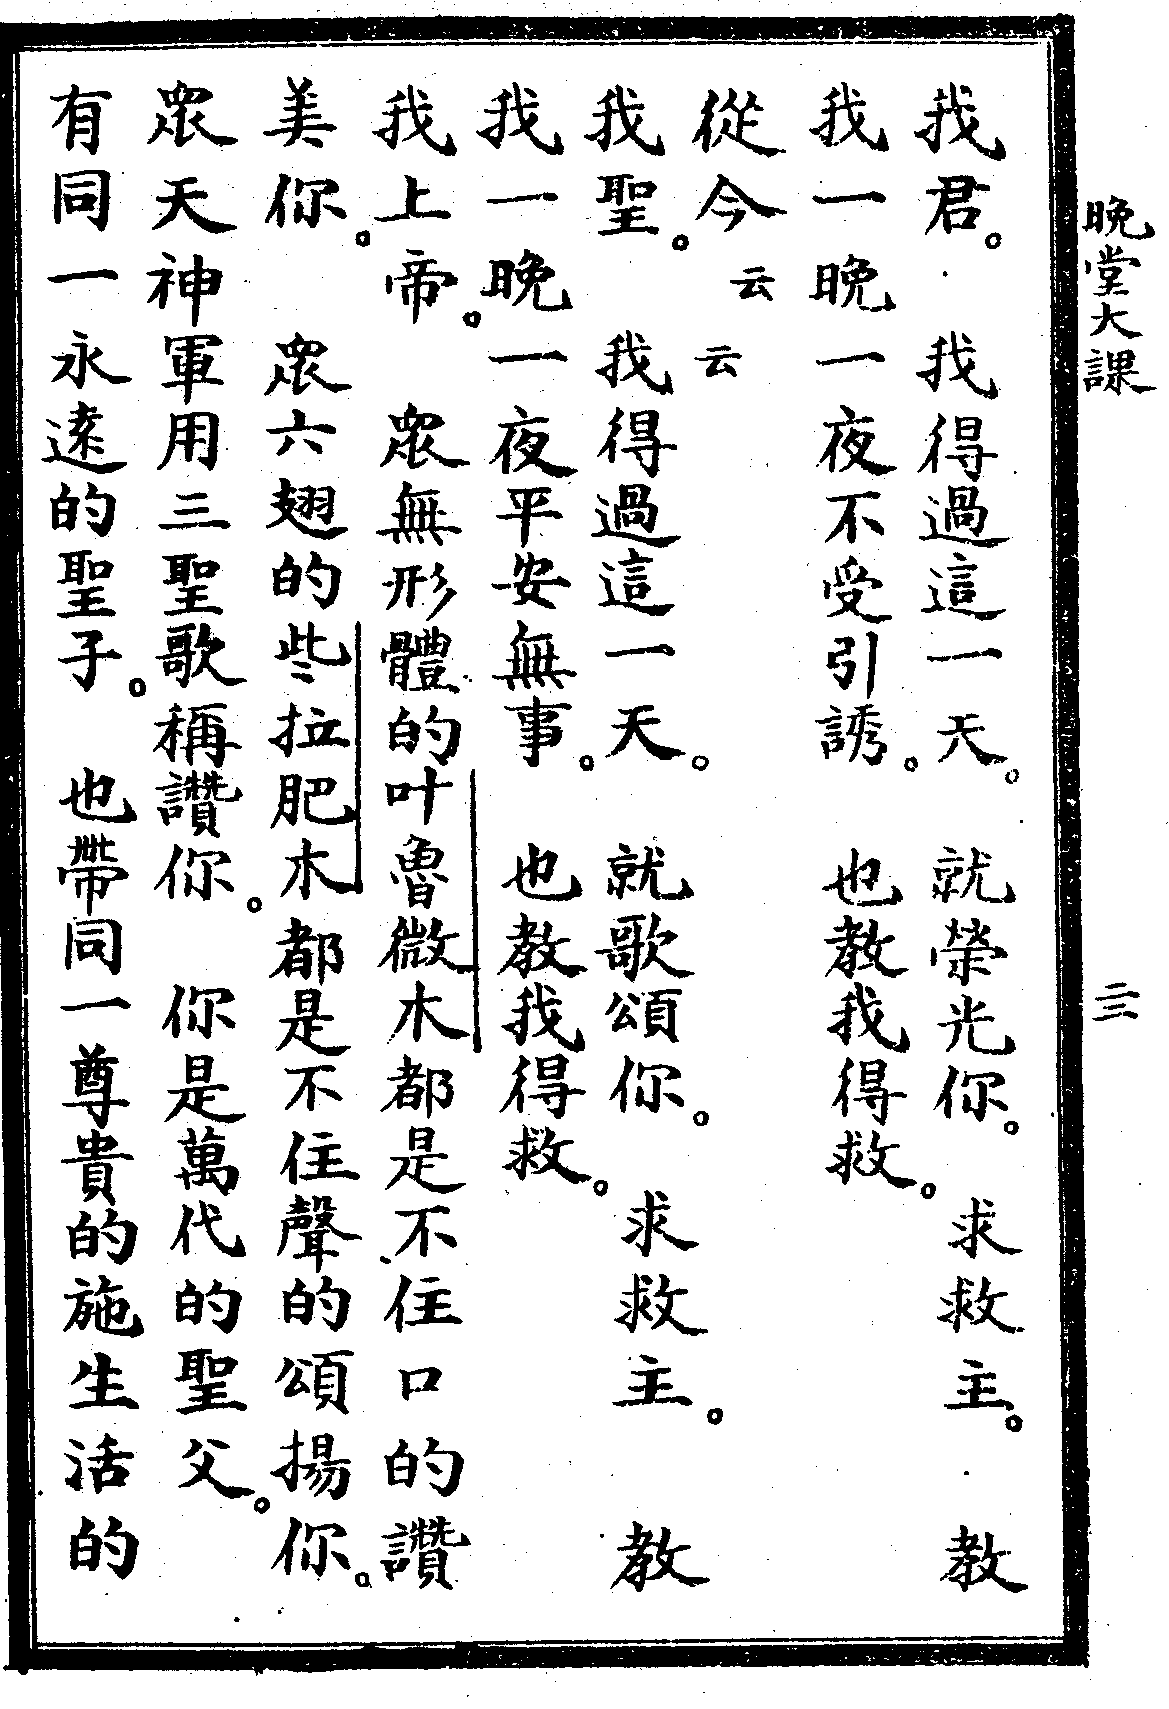 晚堂大課
三
我君。我得過這一天。就榮光你。求救主。教
我一晚一夜不受引誘。也教我得救。
從今云云
我聖。我得過這一天。就歌頌你。求救主。教
我一晚一夜平安無事。也教我得救。
我上帝。眾無形體的叶魯微木都是不住口的讚
美你。眾六翅的些拉肥木都是不住聲的頌揚你。
眾天神軍用三聖歌稱讚你。你是萬代的聖父。
有同一永遠的聖子。也帶同一尊貴的施生活的